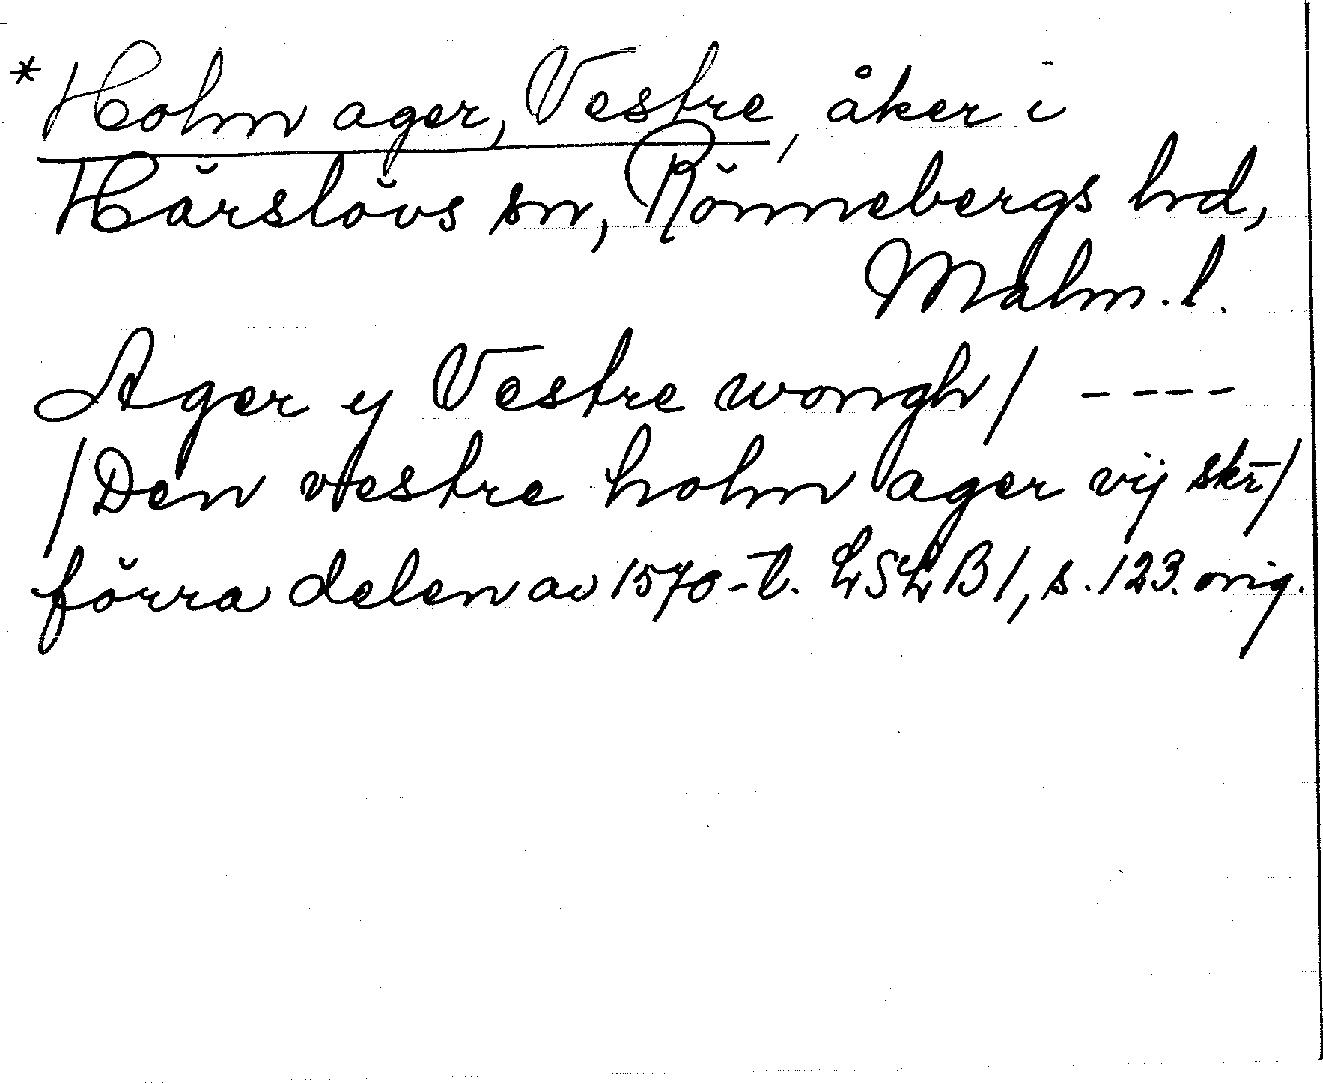 *Holm ager, Vestre, åker i
Härslövs sn, Rönnebergs hrd,
Malm. l.
Ager y Vestre wongh/ ----
/Den vestre holm ager vij skr/
förra delen av 1570-t. LSLB1, s. 123. orig.